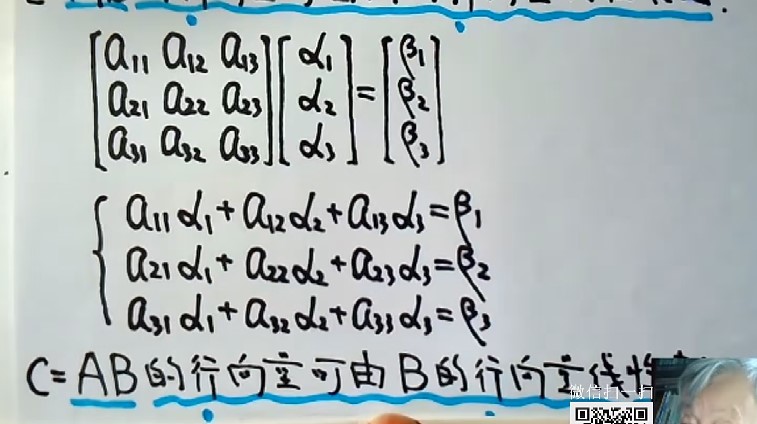 [a₁₁ a₁₂ a₁₃] [α₁] = [β₁]
[a₂₁ a₂₂ a₂₃] [α₂] = [β₂]
[a₃₁ a₃₂ a₃₃] [α₃] = [β₃]
{ a₁₁α₁+a₁₂α₂+a₁₃α₃=β₁
a₂₁α₁+a₂₂α₂+a₂₃α₃=β₂
a₃₁α₁+a₃₂α₂+a₃₃α₃=β₃
C=AB的行向量可由B的行向量线性
微信扫一扫